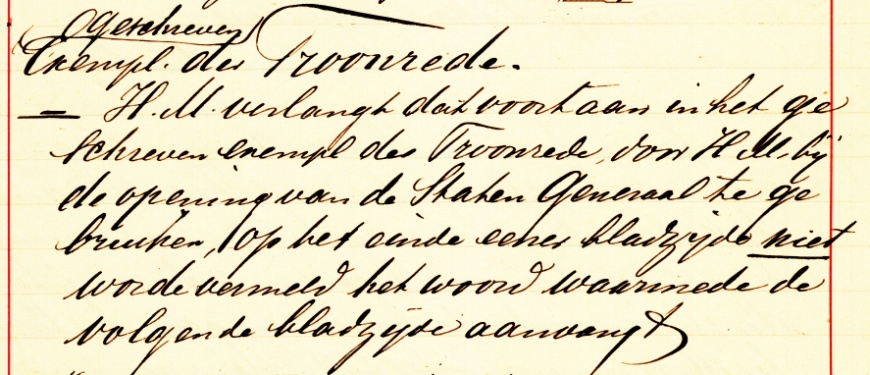 (geschreven)
Exempl. der Troonrede.
— H.M. verlangt dat voortaan in het ge
schreven exempl der Troonrede, door H.M. bij
de opening van de Staten Generaal te ge
bruiken, op het einde eener bladzijde niet
worde vermeld het woord waarmede de
volgende bladzijde aanvangt